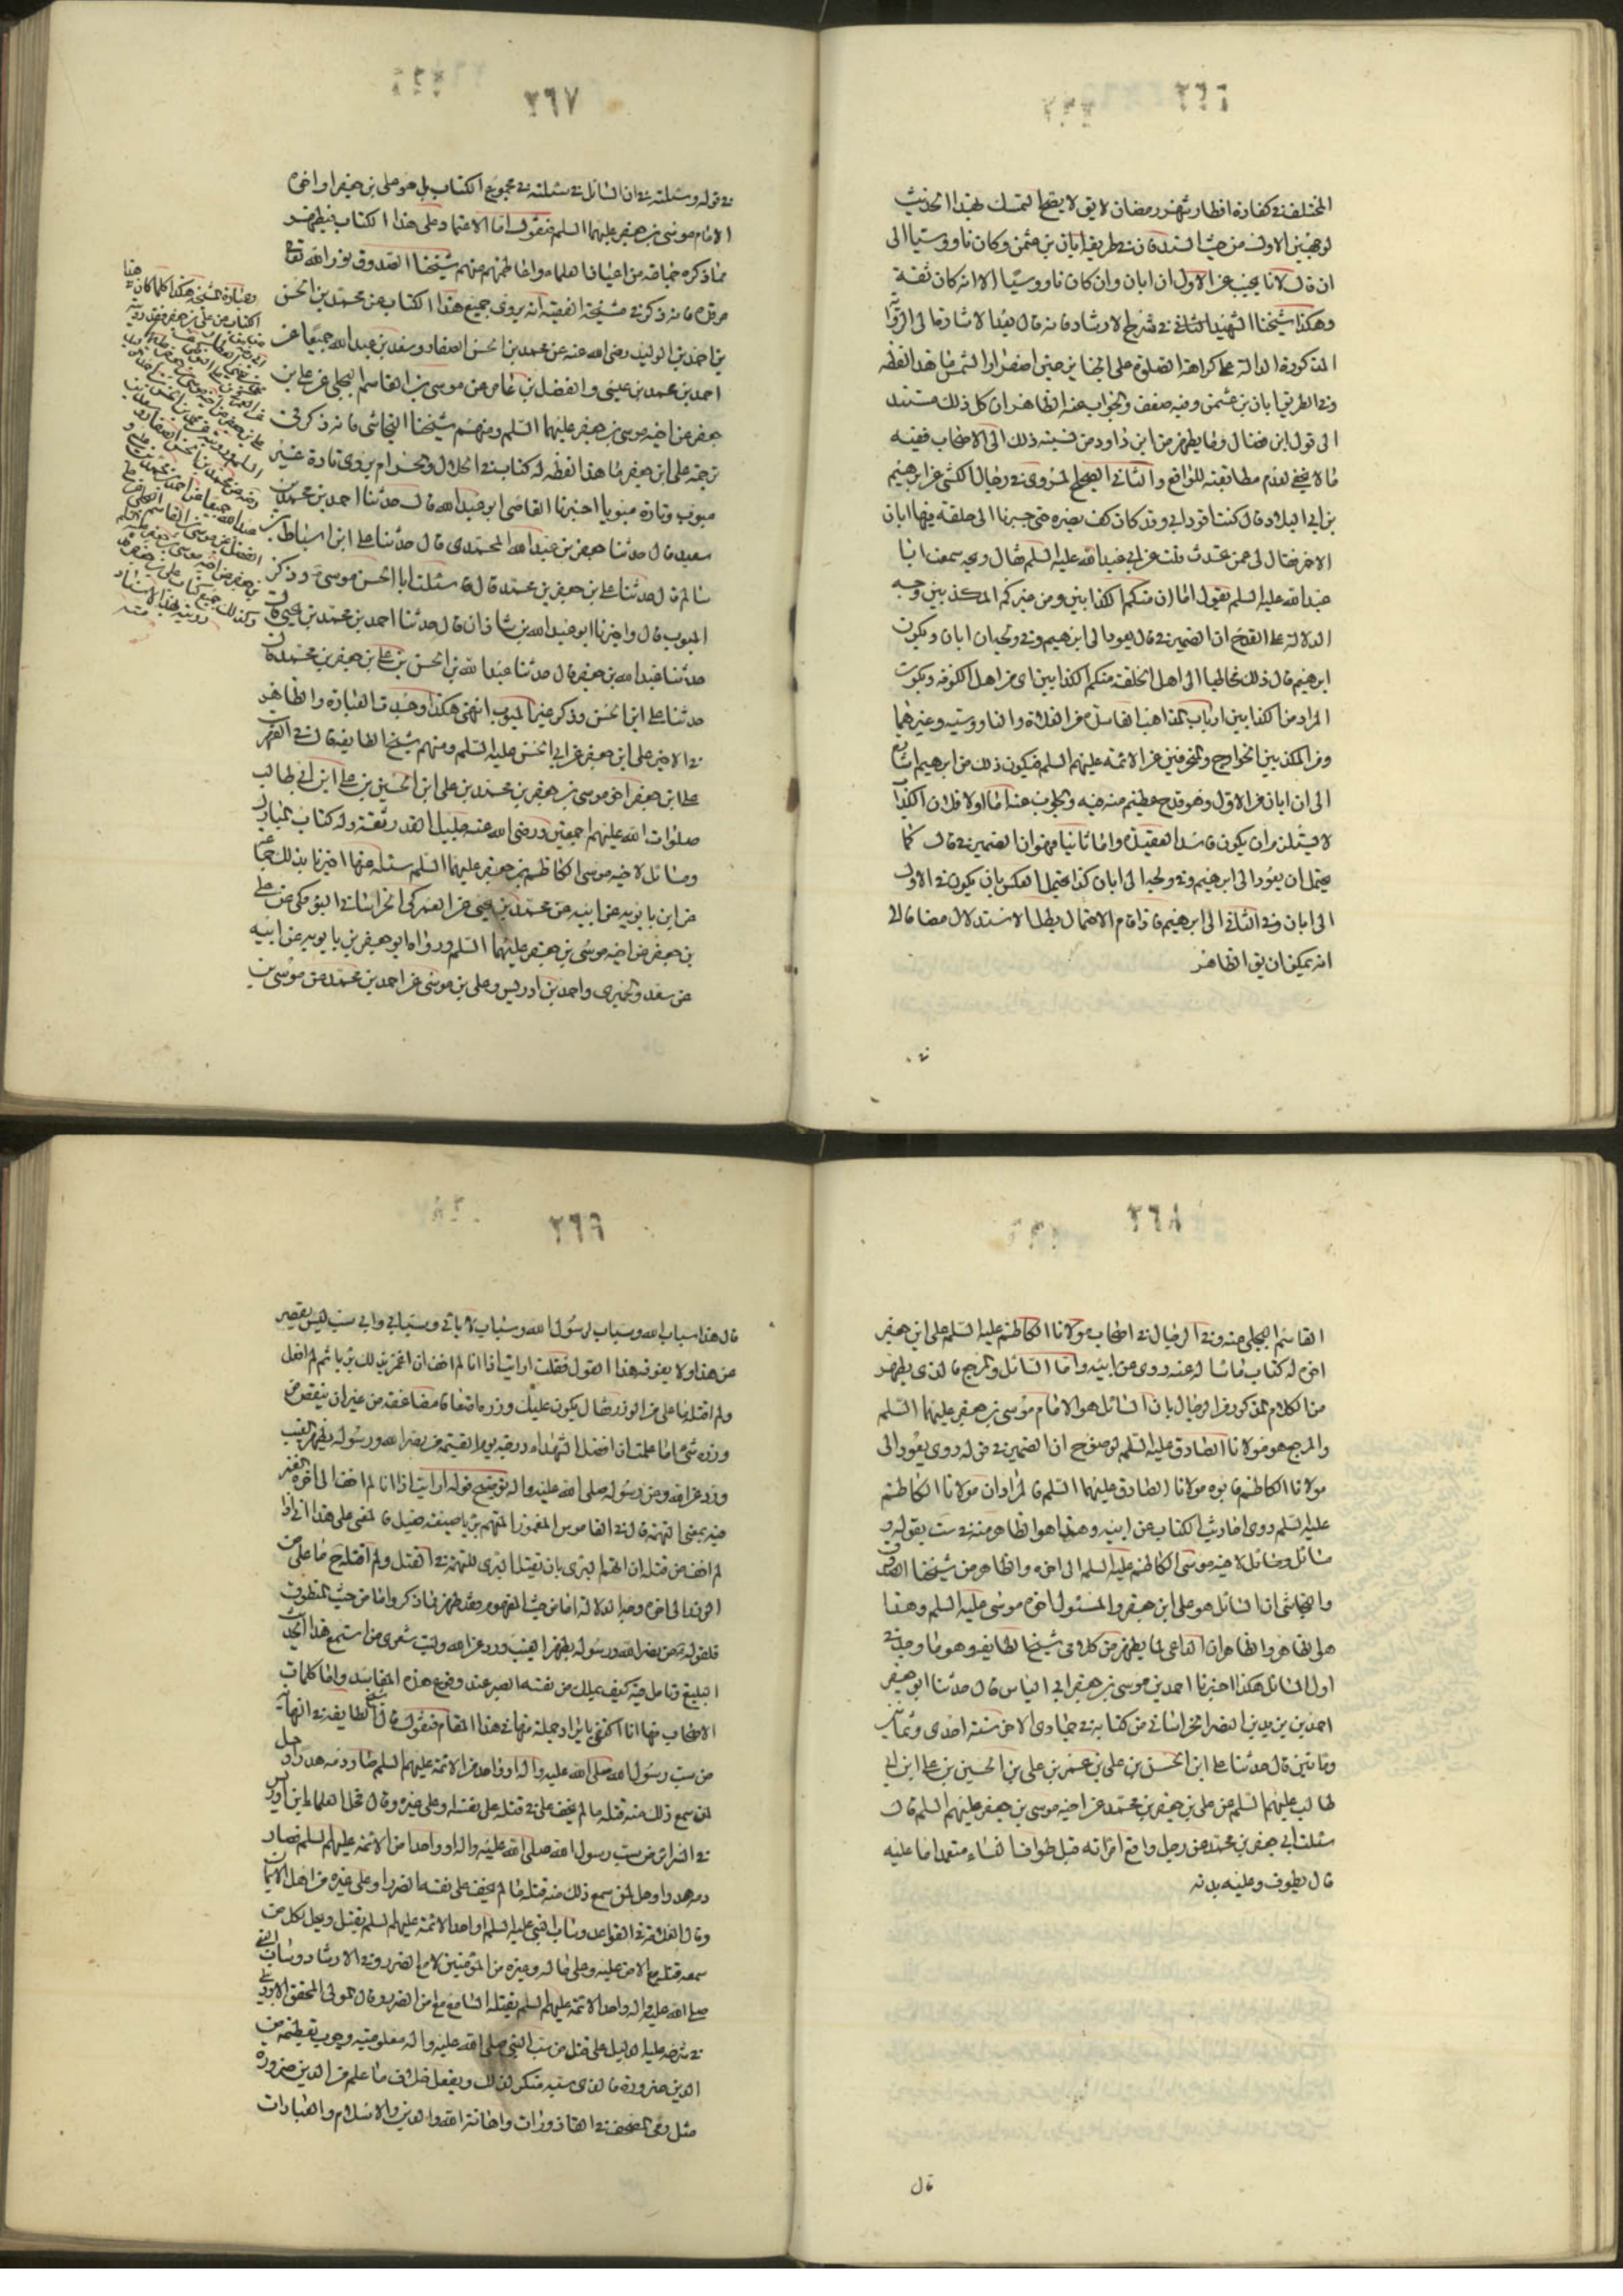 ٢٦٦
المختلف في كفارة افطار شهر رمضان لا يق لا يصح التمسك بهذا الحديث
لوجهين الاول من حيث السند فان في طريقه ابان بن عثمن وكان ناووسيا الى
ان قال لانا نجيب عن الاول ان ابان وان كان ناووسيا الا انه كان ثقة
وهكذا شيخنا الشهيد الثاني في شرح الارشاد فانه قال بعد الاشارة الى الرواية
المذكورة الدالة على كراهة الصلوة على الجنايز حين اصفرار الشمس ما هذا لفظه
وفي الطريق ابان بن عثمن وفيه ضعف والجواب عنه الظاهر ان كل ذلك مستند
الى قول ابن فضال وما يظهر من ابن داود من نسبته ذلك الى الاصحاب ففيه
ما لا يخفى لعدم مطابقته للواقع والثاني الصحيح المروي في رجال الكشي عن ابرهيم
بن ابي البلاد قال كنت اقود ابي وقد كان كف بصره حتى صرنا الى حلقة فيها ابان
الاحمر فقال لي عمن تحدث قلت عن ابي عبد الله عليه السلم فقال ويحه سمعت ابا
عبد الله عليه السلم يقول اما ان منكم الكذابين ومن غيركم المكذبين وجه
الدلالة على القدح ان الضمير في قال يعود الى ابرهيم وفي ويحه ابان ويكون
ابرهيم قال ذلك مخاطبا الى اهل الحلقة منكم الكذابين اي من اهل الكوفة ويكون
المراد من الكذابين ارباب المذاهب الفاسدة من الغلاة والناووسية وغيرهما
ومن المكذبين الخوارج والمنحرفين عن الائمة عليهم السلم فيكون ذلك من ابرهيم اشارة
الى ان ابان من الاول وهو قدح عظيم منه فيه والجواب عنه اما اولا فلان الكذب
لا يستلزم ان يكون فاسد العقيدة واما ثانيا فهو ان الضمير في قال كما
يحتمل ان يعود الى ابرهيم وفي ويحه الى ابان كذا يحتمل العكس بان يكون في الاول
الى ابان وفي الثاني الى ابرهيم فاذا قام الاحتمال بطل الاستدلال مضافا الى
انه يمكن ان يق الظاهر
٢٦٧
في قوله وسئلته في ان السائل في سئلته في مجموع الكتاب بل هو علي بن جعفر او اخوه
الامام موسى بن جعفر عليهما السلم فنقول اما الاعتماد على هذا الكتاب فيظهر
مما ذكره جماعة من اعياننا العلماء واعاظمهم منهم شيخنا الصدوق نور الله تعالى
مرقده فانه ذكر في مشيخة الفقيه انه يروي جميع هذا الكتاب عن محمد بن الحسن
بن احمد بن الوليد رضي الله عنه عن محمد بن الحسن الصفار وسعد بن عبد الله جميعا عن
احمد بن محمد بن عيسى والفضل بن عامر عن موسى بن القاسم البجلي عن علي بن
جعفر عن اخيه موسى بن جعفر عليهما السلم ومنهم شيخنا النجاشي فانه ذكر في
ترجمة علي ابن جعفر ما هذا لفظه له كتاب في الحلال والحرام يروي تارة غير
مبوب وتارة مبوبا اخبرنا القاضي ابو عبد الله قال حدثنا احمد بن محمد بن
سعيد قال حدثنا جعفر بن عبد الله المحمدي قال حدثنا علي ابن اسباط بن
سالم قال حدثنا علي بن جعفر بن محمد قال سئلت ابا الحسن موسى وذكر
المبوب قال واخبرنا ابو عبد الله بن شاذان قال حدثنا احمد بن محمد بن يحيى قال
حدثنا عبد الله بن جعفر قال حدثنا عبد الله بن الحسن بن علي بن جعفر بن محمد قال
حدثنا علي ابن الحسن وذكر غير المبوب انتهى هكذا وجدت العبارة والظاهر
في الاخير علي ابن جعفر عن ابي الحسن عليه السلم ومنهم شيخ الطايفة قال في الفهرست
علي ابن جعفر اخو موسى بن جعفر بن محمد بن علي ابن الحسين بن علي ابن ابي طالب
صلوات الله عليهم اجمعين ورضي الله عنه جليل القدر ثقة وله كتاب المناسك
ومسائل لاخيه موسى الكاظم بن جعفر عليهما السلم سئله عنها اخبرنا بذلك جماعة
عن ابن بابويه عن ابيه عن محمد بن يحيى عن العمركي الخراساني البوفكي عن علي
بن جعفر عن اخيه موسى بن جعفر عليهما السلم ورواه ابو جعفر بن بابويه عن ابيه
عن سعد والحميري واحمد بن ادريس وعلي بن موسى عن احمد بن محمد عن موسى بن
٢٦٨
القاسم البجلي عنه وفي الرجال في اصحاب مولانا الكاظم عليه السلم علي ابن جعفر
اخوه له كتاب ما سئاله عنه روى عن ابيه واما السائل والمرجع فالذي يظهر
من الكلام المذكور في الرجال بان السائل هو الامام موسى بن جعفر عليهما السلم
والمرجع هو مولانا الصادق عليه السلم لوضوح ان الضمير في قوله روى يعود الى
مولانا الكاظم فابوه مولانا الصادق عليهما السلم فالمراد ان مولانا الكاظم
عليه السلم روى احاديث الكتاب عن ابيه وهذا هو الظاهر منه في ست بقوله و
مسائل لاخيه موسى الكاظم عليه السلم الى اخره والظاهر من شيخنا الصدوق
والنجاشي ان السائل هو علي ابن جعفر والمسئول اخوه موسى عليه السلم وهذا
هو الظاهر والظاهر ان الداعي لما يظهر من كلام شيخ الطايفة هو ما وجد في
اول المسائل هكذا اخبرنا احمد بن موسى بن جعفر ابن ابي العباس قال حدثنا ابو جعفر
احمد بن يزيد بن النضر الخراساني من كتابه في جمادى الاخر سنة احدى وثمانين
ومأتين قال حدثنا علي ابن الحسن بن علي بن عمر بن علي بن الحسين بن علي ابن ابي
طالب عليهم السلم عن علي بن جعفر بن محمد عن اخيه موسى بن جعفر عليهم السلم قال
سئلت ابي جعفر بن محمد عن رجل واقع امراته قبل طواف النساء متعمدا ما عليه
قال يطوف وعليه بدنة
قال
٢٦٩
قال هذا سباب الله وسباب لرسول الله وسباب لابائي وسبابي واي سب ليس يقصر
عن هذا ولا يفوقه هذا القول فقلت ارايت اذا انا لم اخف ان اغمز بذلك بريا ثم لم افعل
ولم اقتله ما علي من الوزر فقال يكون عليك وزره اضعافا مضاعفة من غير ان ينقص من
وزره شيء اما علمت ان افضل الشهداء درجة يوم القيمة من نصر الله ورسوله بظهر الغيب
ورد عن الله وعن رسوله صلى الله عليه واله توضيح قوله ارايت اذا انا لم اخف الى اخره الغمز
فيه بمعنى التهمة قال في القاموس المغموز المتهم
لم اخف من قتله ان اتهم لبرى بان يقتل البرى للتهمة في القتل ولم اقتله ما علي من
الوزر الى اخره وجه الدلالة اما من حيث المفهوم فقد ظهر مما ذكر واما من حيث المنطوق
فلقوله من نصر الله ورسوله بظهر الغيب ورد عن الله وليت شعري من استمع هذا الحديث
البليغ وتامل فيه كيف يملك من نفسه الصبر عند وقوع هذه المفاسد واما كلمات
الاصحاب فيها انا اكتفي بايراد جملة منها في هذا المقام فنقول قال شيخ الطايفة في النهاية
من سب رسول الله صلى الله عليه واله او واحدا من الائمة عليهم السلم صار دمه هدرا وحل
لمن سمع ذلك منه قتله ما لم يخف على في قتله على نفسه او على غيره وقال محل العلماء ابن ادريس
في السرائر من سب رسول الله صلى الله عليه واله او واحدا من الائمة عليهم السلم فصار
دمه هدرا وحل لمن سمع ذلك منه قتله ما لم يخف على نفسه الضرر او على غيره من اهل الايمان
وقال العلامة في القواعد وساب النبي عليه السلم او احد الائمة عليهم السلم يقتل ويحل لكل من
سمعه قتله مع الامن عليه وعلى ماله وغيره من المؤمنين لا مع الضرر وفي الارشاد وساب النبي
صلى الله عليه واله واحد الائمة عليهم السلم يقتله السامع مع امن الضرر وقال المولى المحقق الاردبيلي
في شرحه عليه الدليل على قتل من سب النبي صلى الله عليه واله معلومية وجوب تعظيمه من
الدين ضرورة فالذي يسبه منكر لذلك ويفعل خلاف ما علم من الدين ضرورة
مثل رمي المصحف في القاذورات واهانة الله والدين والاسلام والعبادات